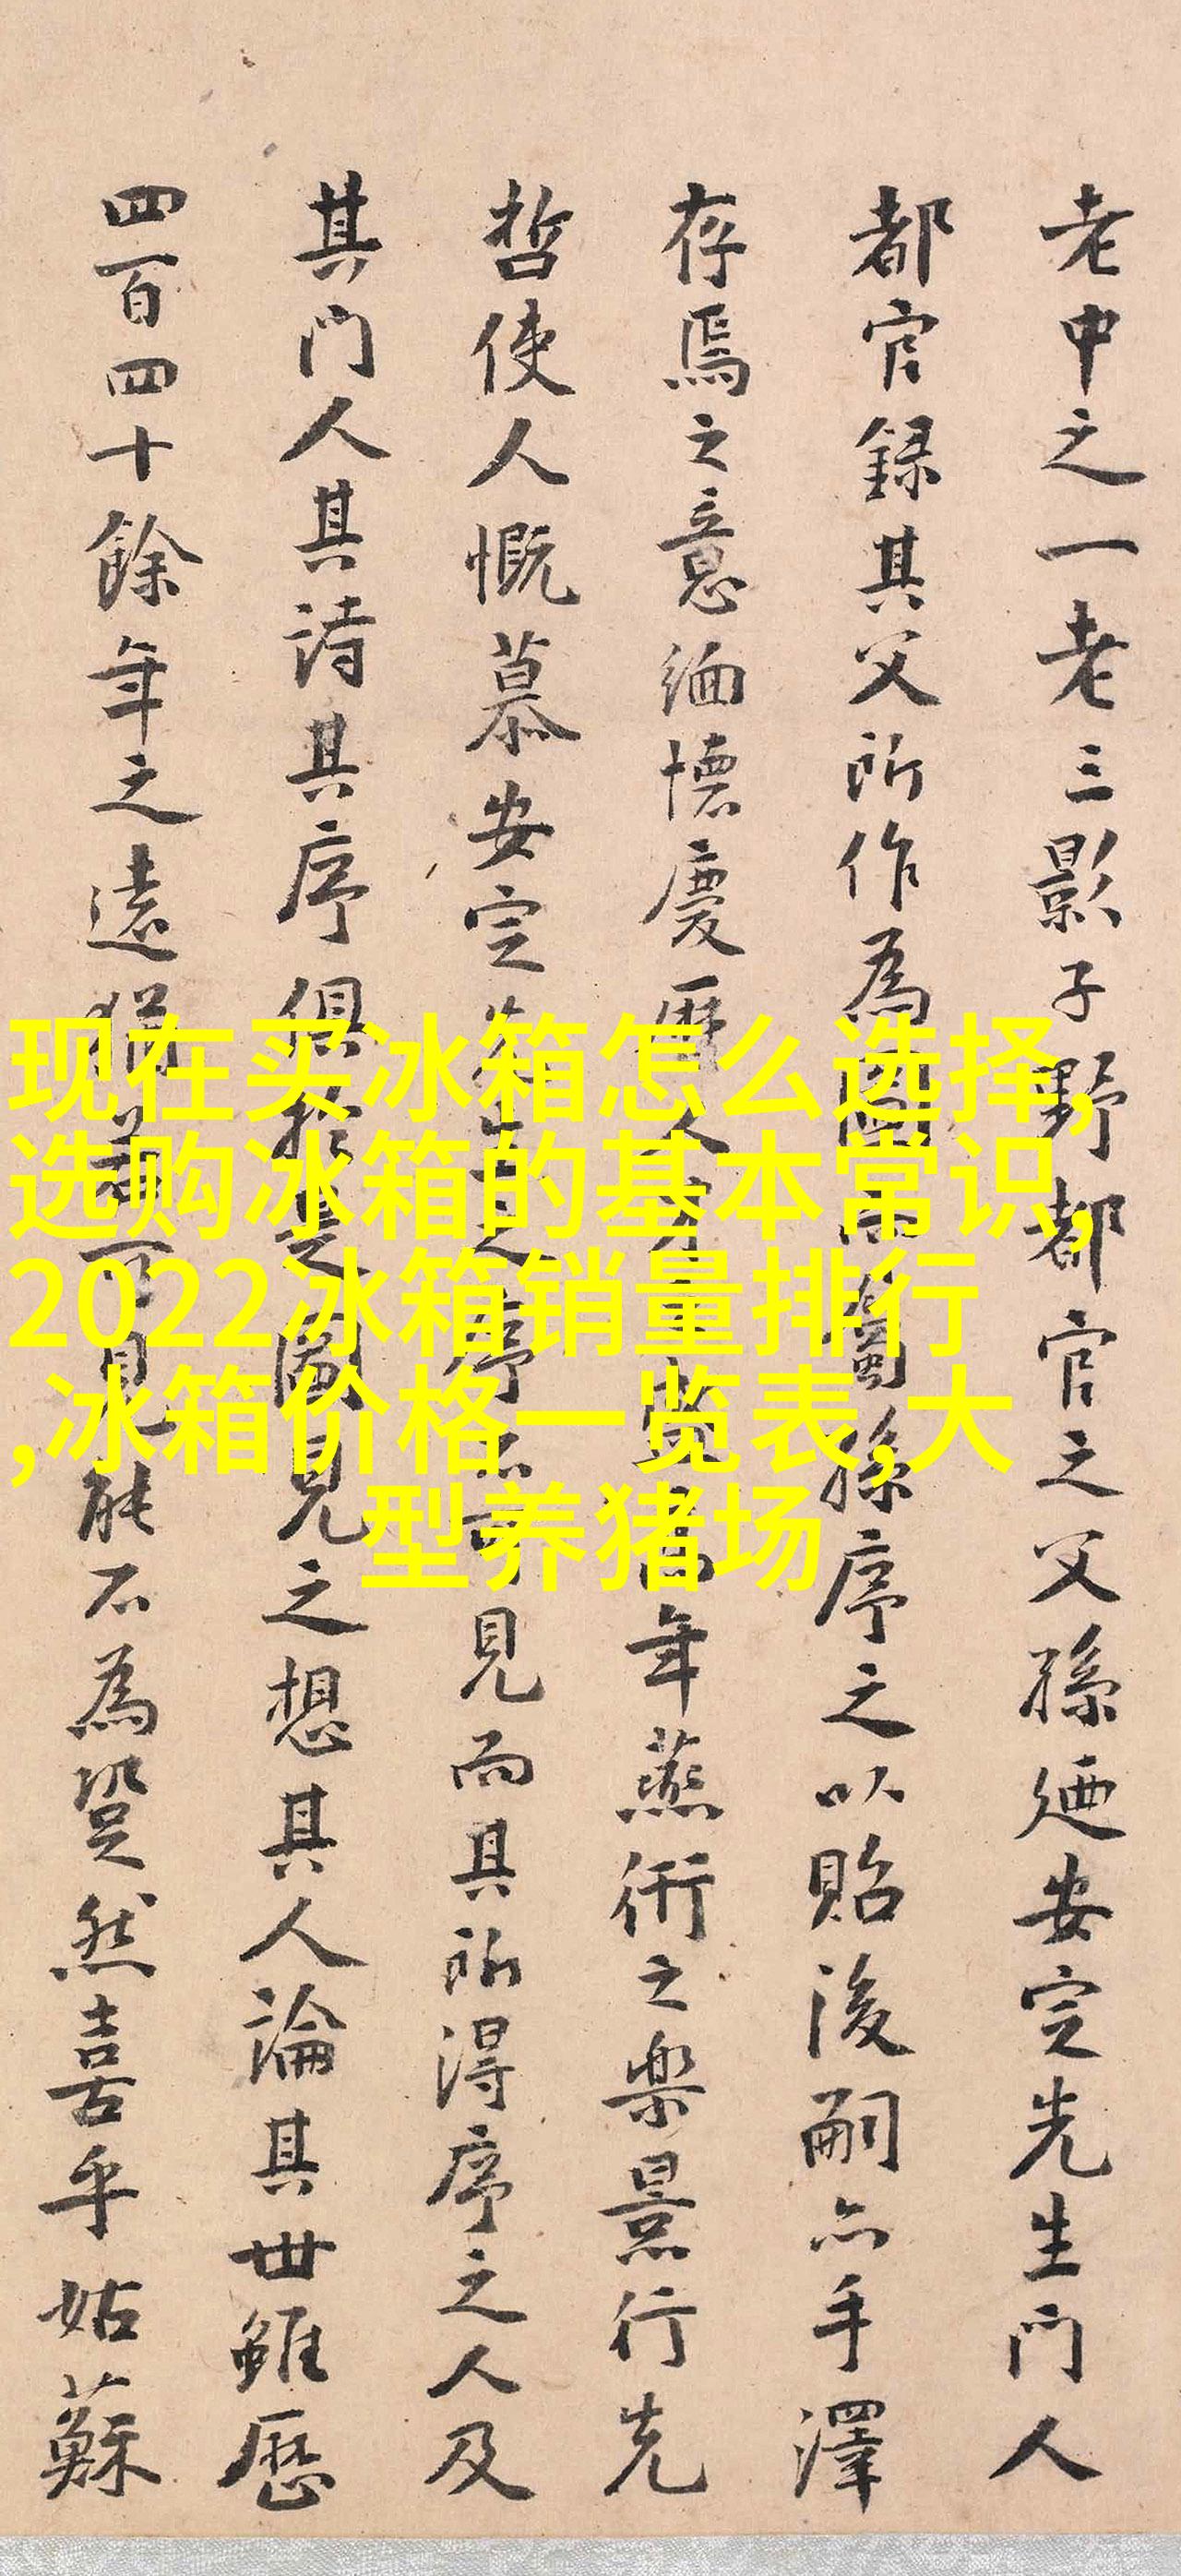 老中之一老三影子野都官之父孫廼安定先生門人
都官録其父所作為圖而孫序之以貽後嗣亦手澤
存焉之意緬懷慶曆人年燕衎之樂景行先
哲使人慨慕安定先生之序不可見而其所得序之人及
其門人其詩其序俱於是圖見之想其人論其世雖歷
四百四十餘年之遠猶可見能不為跫然喜乎姑蘇
现在买冰箱怎么选择,
选购冰箱的基本常识,
2022冰箱销量排行
,冰箱价格一览表,大
型养猪场